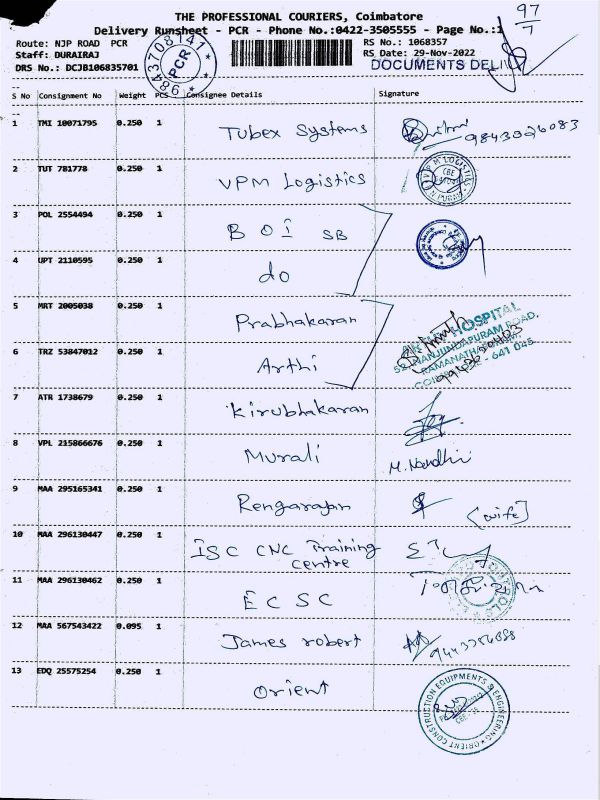 97
7
THE PROFESSIONAL COURIERS, Coimbatore
Delivery Runsheet - PCR - Phone No.:0422-3505555 - Page No.:1
Route: NJP ROAD PCR
RS No.: 1068357
Staff: DURAIRAJ
RS Date: 29-Nov-2022
DRS No.: DCJB106835701
DOCUMENTS
9843708741
PCR
S No Consignment No Weight PCS Consignee Details Signature
1 TMI 10071795 0.250 1 Tubex Systems 9843026083
2 TUT 781778 0.250 1 VPM Logistics
VPM LOGISTICS
CBE
3 POL 2554494 0.250 1 B O I SB
4 UPT 2110595 0.250 1 do
5 MRT 2005038 0.250 1 Prabhakaran
HOSPITAL
NANJUNDAPURAM ROAD,
6 TRZ 53847012 0.250 1 Arthi
- 641 045
7 ATR 1738679 0.250 1 Kirubhakaran
8 VPL 215866676 0.250 1 Murali M. Nandhi
9 MAA 295165341 0.250 1 Rengarajan [wife]
10 MAA 296130447 0.250 1 ISC CNC Training
centre
11 MAA 296130462 0.250 1 E C S C
12 MAA 567543422 0.095 1 James robert
13 EDQ 25575254 0.250 1 Orient
ORIENT CONSTRUCTION EQUIPMENTS & ENGINEERING